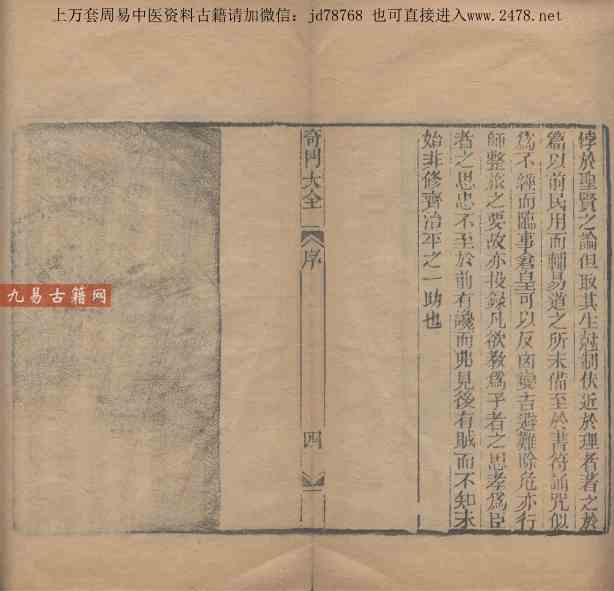 上万套周易中医资料古籍请加微信：jd78768 也可直接进入www.2478.net
悖於聖賢之論但取其生尅制伏近於理者著之於
篇以前民用而輔易道之所未備至於書符誦咒似
爲不經而臨事倉皇可以反凶變吉避難除危亦行
師整旅之要故亦投錄凡欲敎爲子者之思孝爲臣
者之思忠不至於前有讒而弗見後有賊而不知未
始非修齊治平之一助也
奇門大全
序
四
九易古籍网